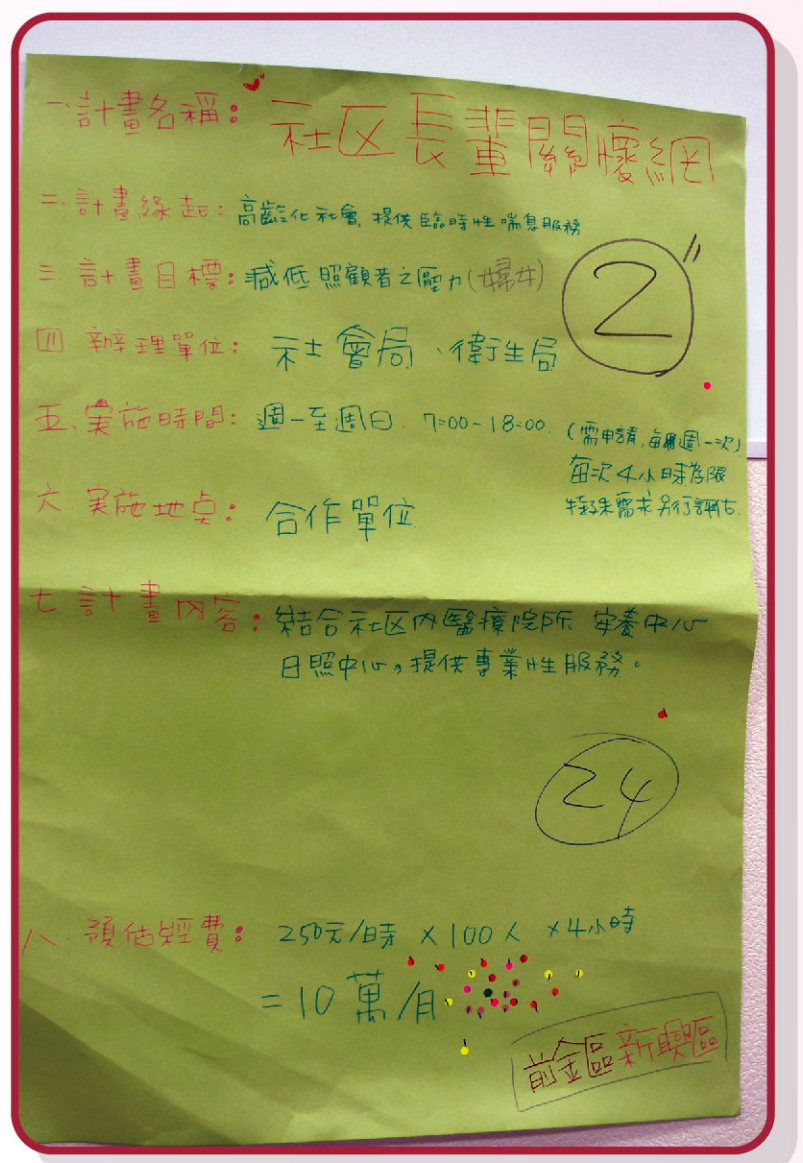 一.計畫名稱：社区長輩關懷網
二.計畫緣起：高齡化社會,提供臨時性喘息服務
三.計畫目標：減低照顧者之壓力(婦女)
2"
四.辦理單位：社會局、衛生局
五.実施時間：週一至週日. 7:00-18:00. (需申請,每週一次)
每次4小時為限
特殊需求另行評估.
六.実施地点：合作單位
七.計畫內容：結合社区內醫療院所 安養中心
日照中心,提供專業性服務。
24
八.預估經費：250元/時×100人×4小時
=10萬/月
前金區新興區